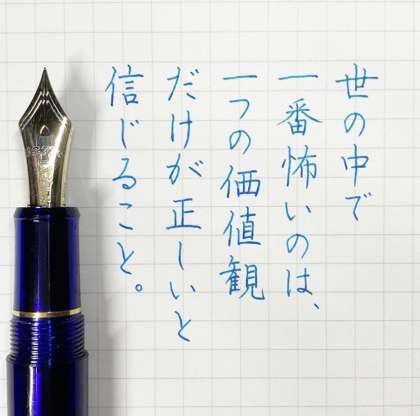 世の中で
一番怖いのは、
一つの価値観
だけが正しいと
信じること。